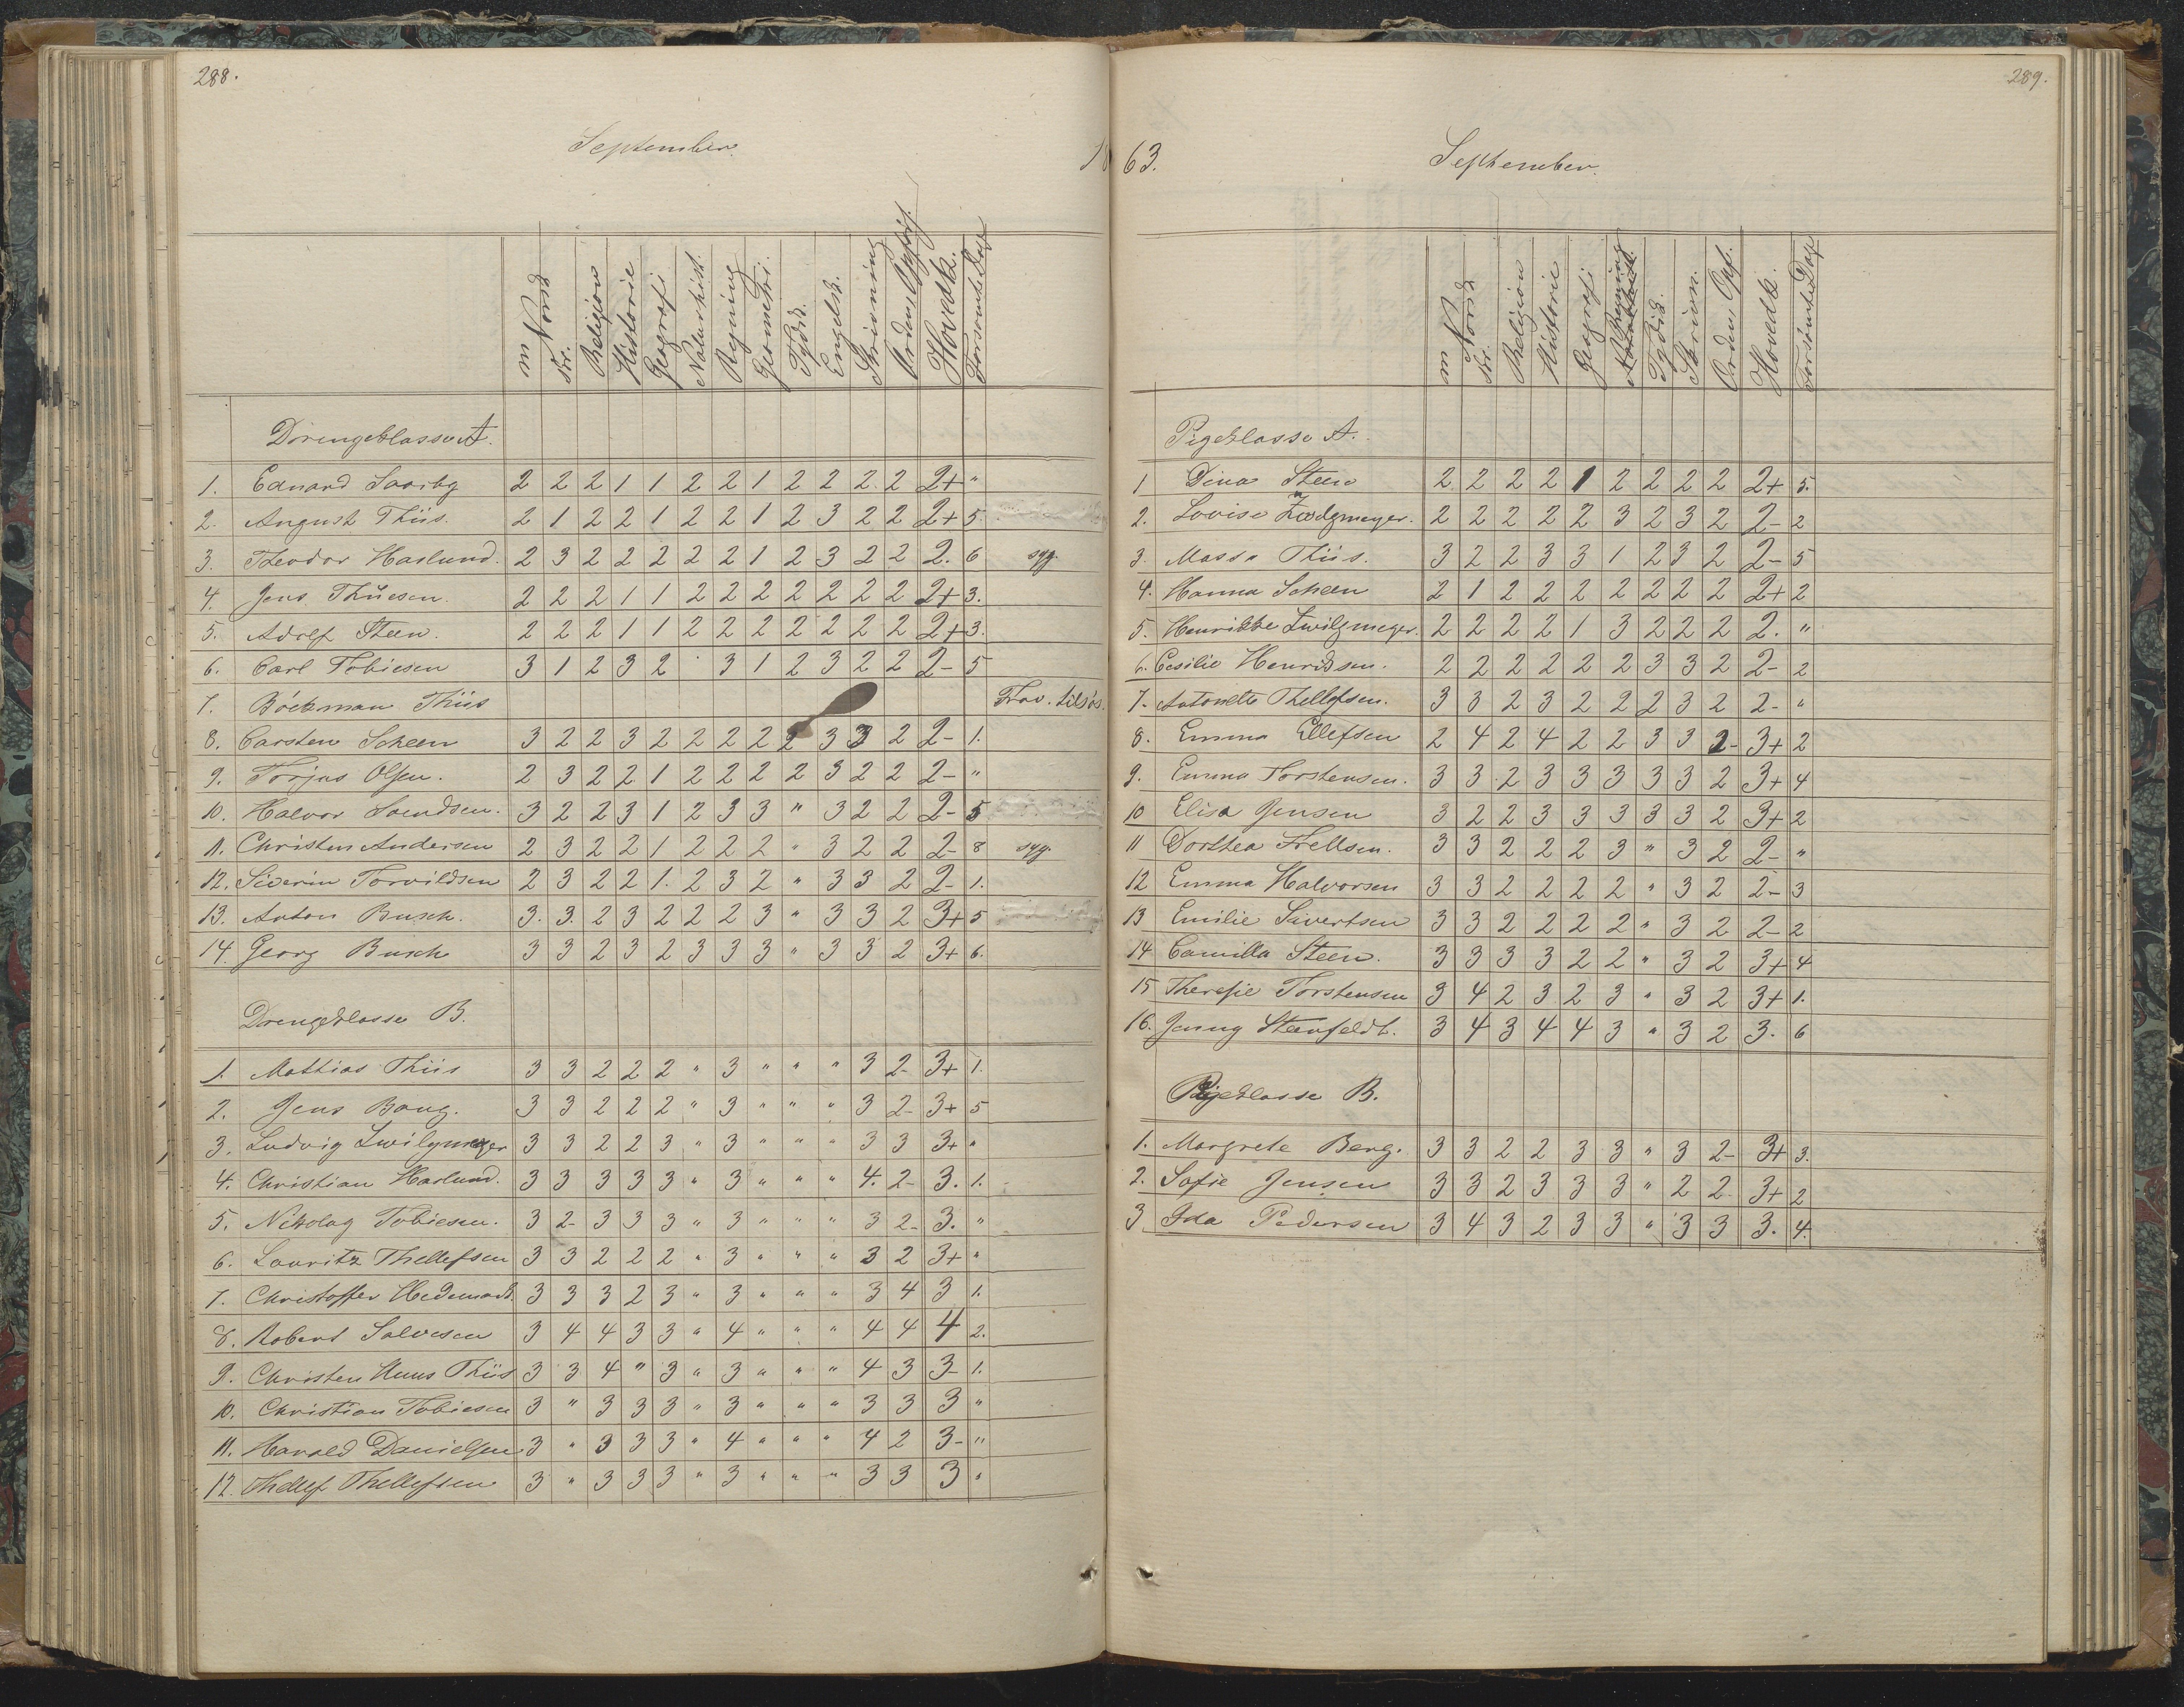 288.
September.
18
m Norsk
skr.
Religion
Historie
Geografi
Naturhist.
Regning
Geometri.
Tydsk.
Engelsk.
Skrivning
Orden Opførs.
Hovedk.
Forsømte Dage
Drengeklasse A.
1. Eduard Saarby 2 2 2 1 1 2 2 1 2 2 2 2 2+ "
2. August Thiis. 2 1 2 2 1 2 2 1 2 3 2 2 2+ 5
3. Theodor Haslund. 2 3 2 2 2 2 2 1 2 3 2 2 2. 6 syg.
4. Jens Thüesen. 2 2 2 1 1 2 2 2 2 2 2 2 2+ 3.
5. Adolf Steen. 2 2 2 1 1 2 2 2 2 2 2 2 2+ 3.
6. Carl Tobiesen 3 1 2 3 2 3 1 2 3 2 2 2- 5
7. Böckman Thiis Frav. tilsös.
8. Carsten Scheen 3 2 2 3 2 2 2 2 2 3 3 2 2- 1.
9. Torjus Olsen. 2 3 2 2 1 2 2 2 2 3 2 2 2- "
10. Halvor Svendsen. 3 2 2 3 1 2 3 3 " 3 2 2 2- 5
11. Christen Andersen 2 3 2 2 1 2 2 2 " 3 2 2 2- 8 syg.
12. Siverin Torvildsen 2 3 2 2 1. 2 3 2 " 3 3 2 2- 1.
13. Anton Busch. 3. 3. 2 3 2 2 2 3 " 3 3 2 3+ 5
14. Georg Busch 3 3 2 3 2 3 3 3 " 3 3 2 3+ 6.
Drengeklasse B.
1. Mattias Thiis 3 3 2 2 2 " 3 " " " 3 2- 3+ 1.
2. Jens Bang. 3 3 2 2 2 " 3 " " " 3 2- 3+ 5
3. Ludvig Zwilgmeyer 3 3 2 2 3 " 3 " " " 3 3 3+ "
4. Christian Haslund. 3 3 3 3 3 " 3 " " " 4. 2- 3. 1.
5. Nikolay Tobiesen. 3 2- 3 3 3 " 3 " " " 3 2- 3. "
6. Lauritz Thellefsen 3 3 2 2 2 " 3 " " " 3 2 3+ "
7. Christoffer Hedemark. 3 3 3 2 3 " 3 " " " 3 4 3 1.
8. Robert Salvesen 3 4 4 3 3 " 4 " " " 4 4 4 2.
9. Christen Huus Thiis 3 3 4 " 3 " 3 " " " 4 3 3- 1.
10. Christian Tobiesen 3 " 3 3 3 " 3 " " " 3 3 3 "
11. Harald Danielsen 3 " 3 3 3 " 4 " " " 4 2 3- "
12. Thellef Thellefsen 3 " 3 3 3 " 3 " " " 3 3 3 "
289.
63.
September.
m Norsk
skr.
Religion
Historie
Geografi
Regning
Tydsk.
Skrivn.
Orden Opf.
Hovedk.
Forsømte Dage
Pigeklasse A.
1 Dina Steen 2 2 2 2 1 2 2 2 2 2+ 5.
2. Lovise Zwilgmeyer. 2 2 2 2 2 3 2 3 2 2- 2
3. Massa Thiis. 3 2 2 3 3 1 2 3 2 2- 5
4. Hanna Scheen 2 1 2 2 2 2 2 2 2 2+ 2
5. Henrikke Zwilgmeyer. 2 2 2 2 1 3 2 2 2 2. "
6. Cesilie Henriksen. 2 2 2 2 2 2 3 3 2 2- 2
7. Antonette Thellefsen. 3 3 2 3 2 2 2 3 2 2- "
8. Emma Ellefsen 2 4 2 4 2 2 3 3 2- 3+ 2
9. Emma Torstensen. 3 3 2 3 3 3 3 3 2 3+ 4
10 Elisa Jensen 3 2 2 3 3 3 3 3 2 3+ 2
11 Dorthea Frellsen. 3 3 2 2 2 3 " 3 2 2- "
12 Emma Halvorsen 3 3 2 2 2 2 " 3 2 2- 3
13 Emilie Sivertsen 3 3 2 2 2 2 " 3 2 2- 2
14 Camilla Steen. 3 3 3 3 2 2 " 3 2 3+ 4
15 Theresie Torstensen 3 4 2 3 2 3 " 3 2 3+ 1.
16. Jenny Steenfeldt. 3 4 3 4 4 3 " 3 2 3. 6
Pigeklasse B.
1. Margrete Berg. 3 3 2 2 3 3 " 3 2- 3+ 3.
2. Sofie Jensen 3 3 2 3 3 3 " 2 2 3+ 2
3 Ida Pedersen 3 4 3 2 3 3 " 3 3 3. 4.